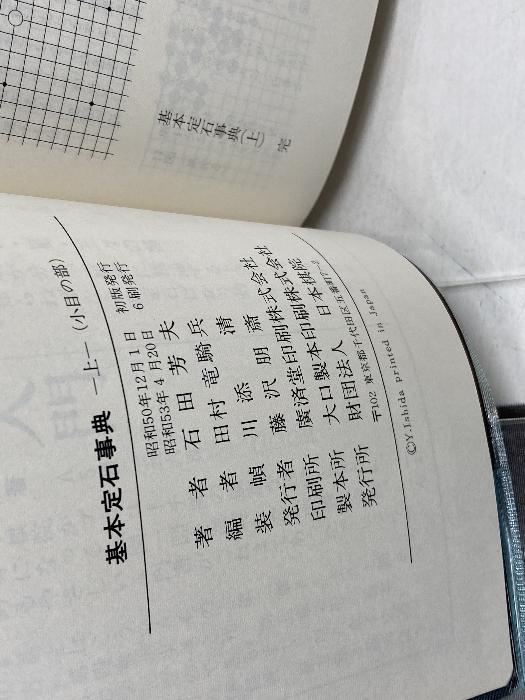 基本定石事典(上) 完
基本定石事典 ―上―(小目の部)
昭和50年12月1日 初版発行
昭和53年4月20日 6刷発行
著者 石田芳夫
編者 田村竜騎兵
装幀 川添清
発行者 藤沢朋斎
印刷所 廣済堂印刷株式会社
製本所 大口製本印刷株式会社
発行所 財団法人 日本棋院
〒102 東京都千代田区五番町7-2
©Y.Ishida Printed in Japan